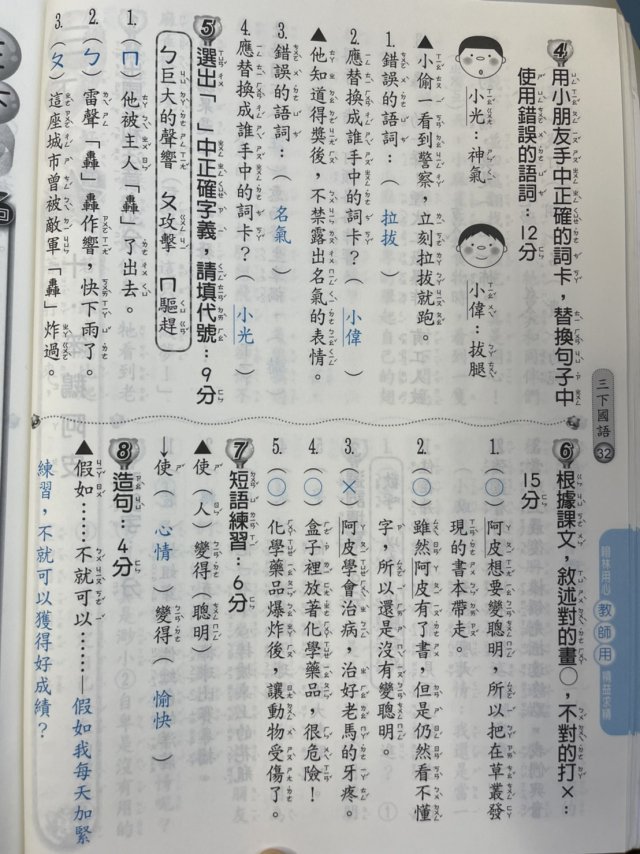 三下國語 32
翰林用心 教師用 精益求精
4 用小朋友手中正確的詞卡，替換句子中
使用錯誤的語詞：12分
小光：神氣
小偉：拔腿
▲小偷一看到警察，立刻拉拔就跑。
1. 錯誤的語詞：（拉拔）
2. 應替換成誰手中的詞卡？（小偉）
▲他知道得獎後，不禁露出名氣的表情。
3. 錯誤的語詞：（名氣）
4. 應替換成誰手中的詞卡？（小光）
5 選出「 」中正確字義，請填代號：9分
ㄅ巨大的聲響 ㄆ攻擊 ㄇ驅趕
1.（ㄇ）他被主人「轟」了出去。
2.（ㄅ）雷聲「轟」轟作響，快下雨了。
3.（ㄆ）這座城市曾被敵軍「轟」炸過。
6 根據課文，敘述對的畫○，不對的打×：
15分
1.（○）阿皮想要變聰明，所以把在草叢發
現的書本帶走。
2.（○）雖然阿皮有了書，但是仍然看不懂
字，所以還是沒有變聰明。
3.（×）阿皮學會治病，治好老馬的牙疼。
4.（○）盒子裡放著化學藥品，很危險！
5.（○）化學藥品爆炸後，讓動物受傷了。
7 短語練習：6分
▲使（人）變得（聰明）
→使（心情）變得（愉快）
8 造句：4分
▲假如……不就可以……—假如我每天加緊
練習，不就可以獲得好成績？